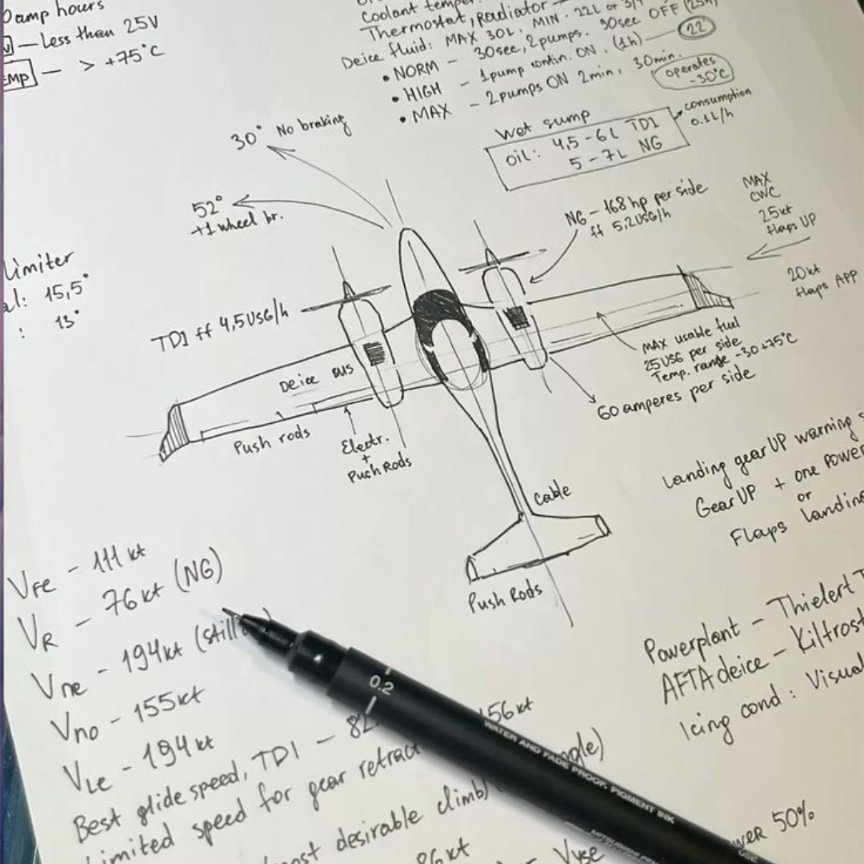 amp hours
— Less than 25V
— > +75°C
Coolant temper
Thermostat, Radiator
Deice fluid: MAX 30L. MIN. 22L or
• NORM — 30sec, 2pumps. 30sec OFF
• HIGH — 1pump contin. ON. (1h) — 22°
• MAX — 2pumps ON 2min, 30min.
operates
-30°C
wet sump
oil: 4,5-6L TDI
5-7L NG
consumption
0.1L/h
30° No braking
52°
+1 wheel br.
NG - 168hp per side
ff 5,2USG/h
MAX
CWC
25kt
flaps UP
20kt
flaps APP
Limiter
15,5°
: 13°
TDI ff 4,5USG/h
Deice sus
MAX usable fuel
25USG per side
Temp. range -30+75°C
60 amperes per side
Push rods
Electr.
+
Push Rods
Cable
Push Rods
Landing gear UP warning
Gear UP + one Power
or
Flaps landin
VFE - 111 kt
VR - 76kt (NG)
Vne - 194kt (still
Vno - 155kt
VLE - 194 kt
Best glide speed, TDI - 82
56kt
Limited speed for gear retract
most desirable climb)
86kt
Vyse
Powerplant - Thielert T
AFTA deice - Kilfrost
Icing cond: Visual
50%
0.2
WATER AND FADE PROOF, PIGMENT INK